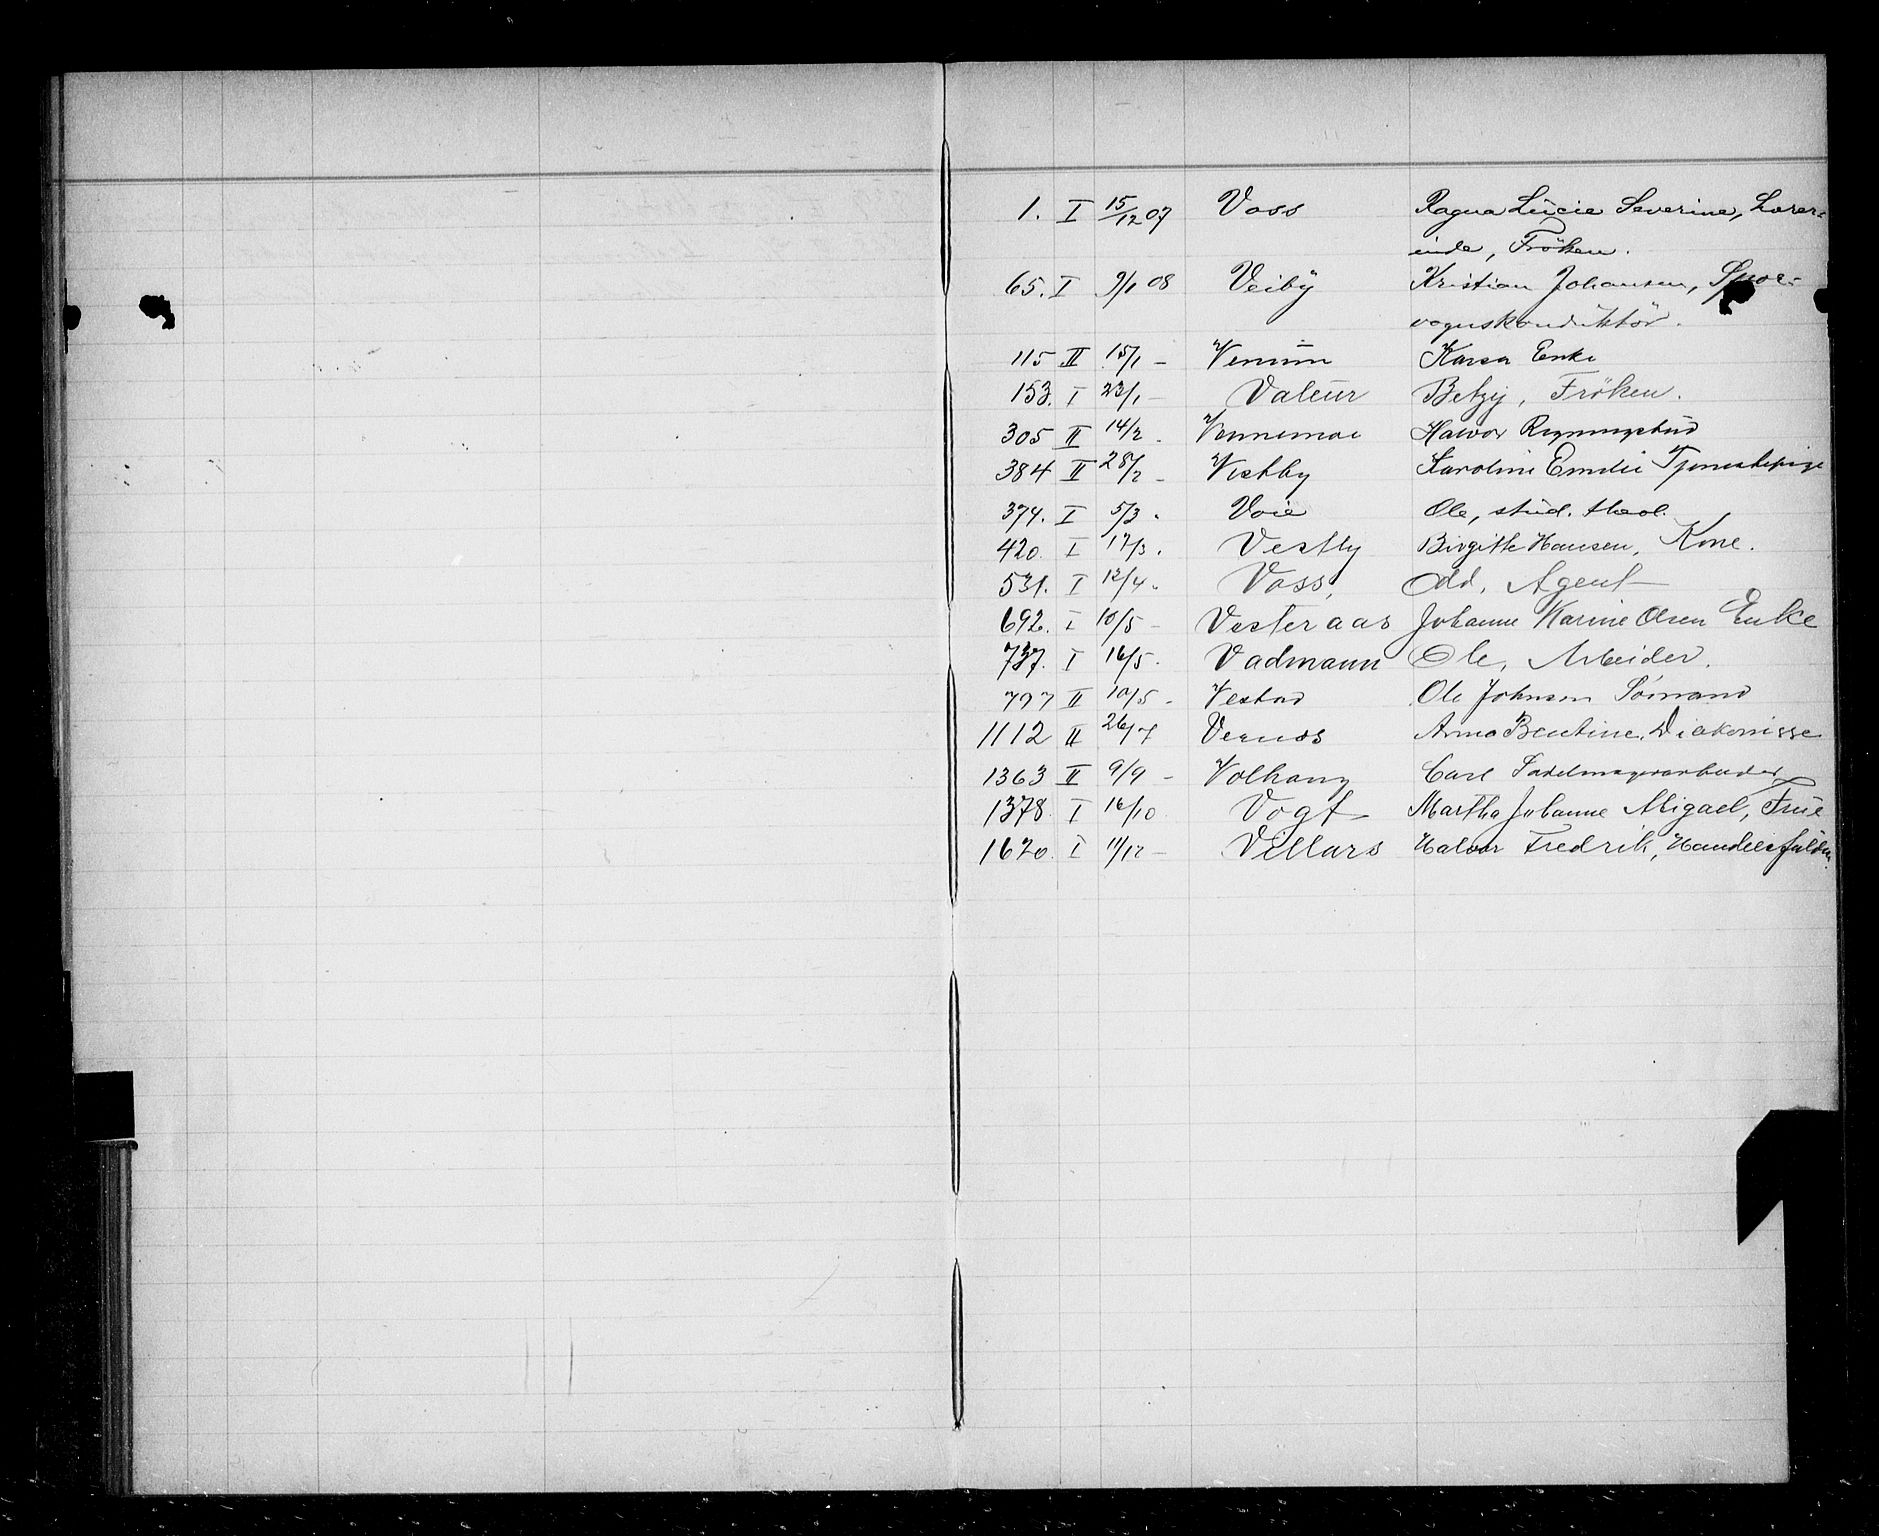 1. I 15/12 07 Voss Ragna Lucie Severine, Lærer-
inde, Fröken.
65. I 9/1 08 Veiby Kristian Johansen, Spor-
vognskonduktör.
115 II 15/1 - Venum Karen Enke
153. I 23/1 - Valeur Betzy, Fröken.
305 II 14/2 - Vennemoe Halvor
384 II 28/2 - Vestby Karoline Emilie Tjenestepige
374. I 5/3 - Voie Ole, stud. theol.
420. I 17/3. Vestly Birgitte Hansen, Kone.
531. I 12/4. Voss, Odd, Agent
692. I 10/5 - Vesteraas Johanne Karine Olsen Enke
737. I 16/5. Vadmann Ole, Arbeider.
797 II 10/5 - Vestad Ole Johnsen Sømand
1112 II 26/7 Vernos Anna Bentine, Diakonisse
1363 II 9/9 - Volhaug Carl Sadelmagerarbeider
1378. I 16/10 Vogt Martha Johanne Abigael, Frue
1620. I 11/12 - Villars Halvor Fredrik, Handelsfuldm.